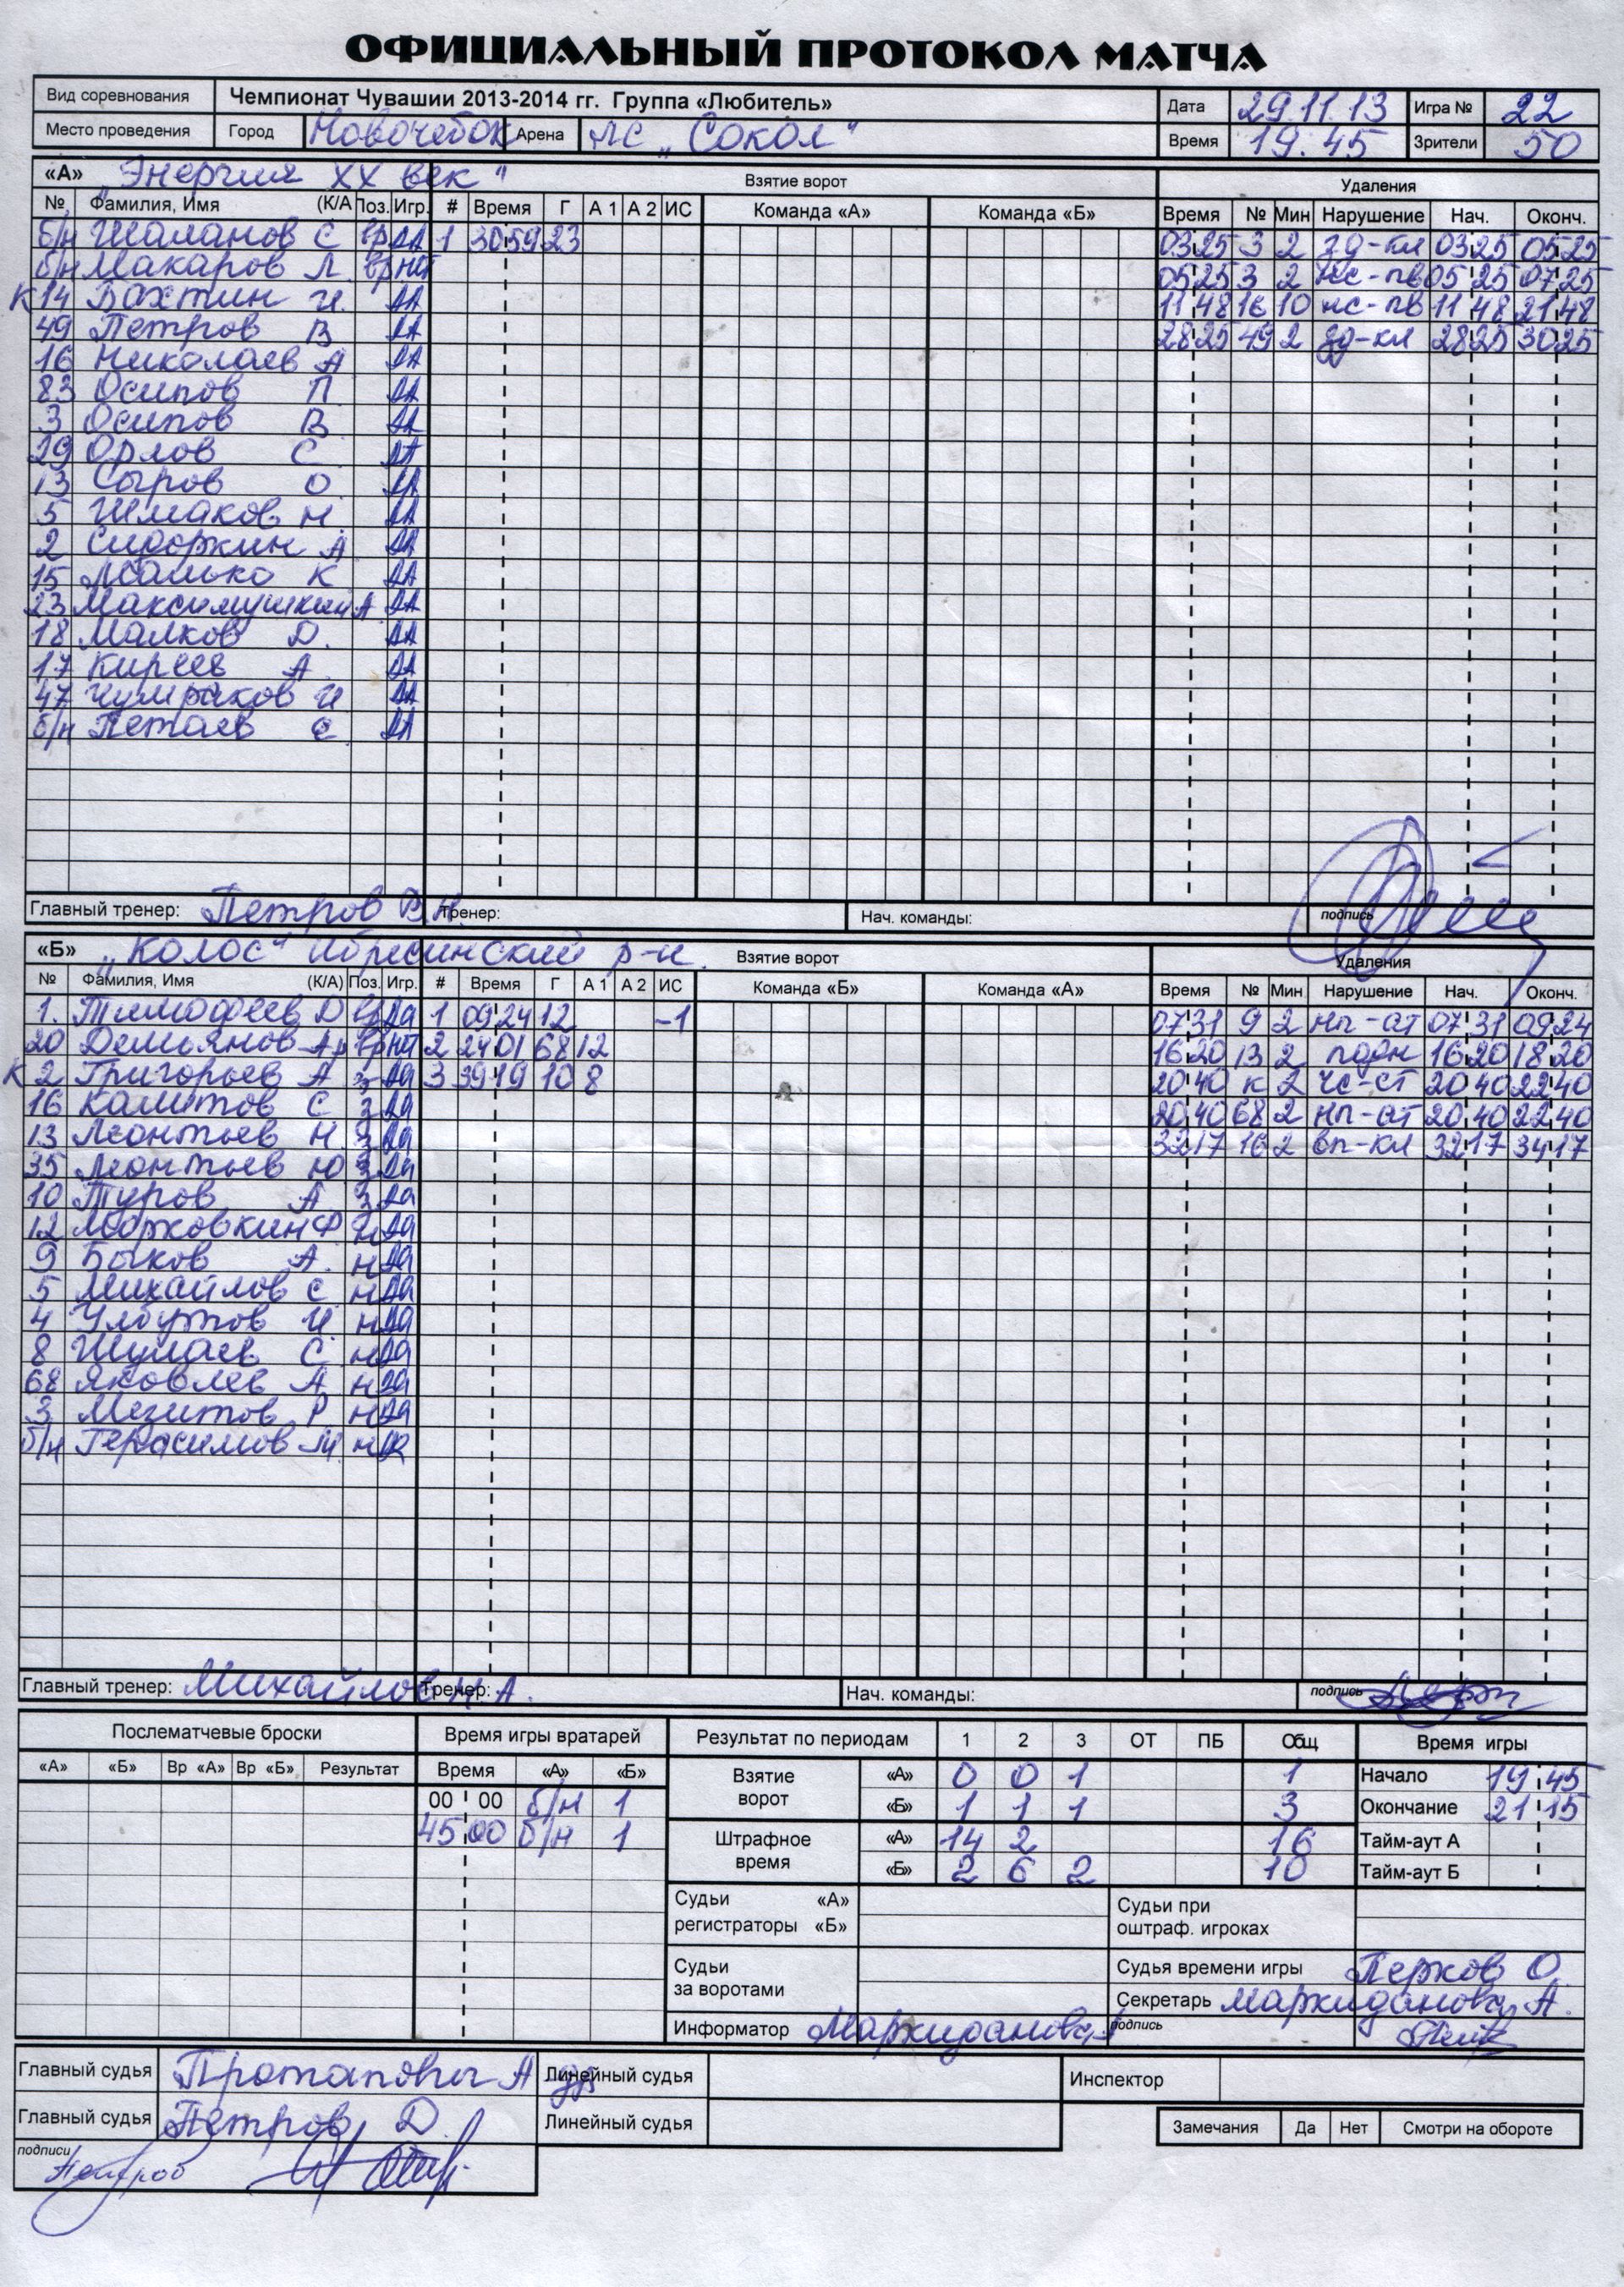 ОФИЦИАЛЬНЫЙ ПРОТОКОЛ МАТЧА
Вид соревнования Чемпионат Чувашии 2013-2014 гг. Группа «Любитель» Дата 29.11.13 Игра № 22
Место проведения Город Новочебок Арена ЛС „Сокол" Время 19:45 Зрители 50
«А» „Энергия XX век" Взятие ворот Удаления
№ Фамилия, Имя (К/А Поз. Игр. # Время Г А 1 А 2 ИС Команда «А» Команда «Б» Время № Мин Нарушение Нач. Оконч.
б/н Шаланов С Вр ДА 1 30 59 23 03 25 3 2 зд-кл 03 25 05 25
б/н Макаров Л. вр нет 05 25 3 2 нс-пв 05 25 07 25
К 14 Бахтин И. ДА 11 48 16 10 нс-пв 11 48 21 48
49 Петров В ДА 28 25 49 2 зд-кл 28 25 30 25
16 Николаев А ДА
83 Осипов П ДА
3 Осипов В ДА
29 Орлов С ДА
13 Сыров О ДА
5 Шмаков Н. ДА
2 Сидоркин А ДА
15 К ДА
23 Максимушкин А. ДА
18 Малков Д. ДА
17 Киреев А ДА
47 Чумраков И ДА
б/н Петаев С ДА
Главный тренер: Петров В.Н. Тренер: Нач. команды: подпись
«Б» „Колос" Ибресинский р-н. Взятие ворот Удаления
№ Фамилия, Имя (К/А) Поз. Игр. # Время Г А 1 А 2 ИС Команда «Б» Команда «А» Время № Мин Нарушение Нач. Оконч.
1. Тимофеев Д Вр Да 1 09 24 12 -1 07 31 9 2 нп-ат 07 31 09 24
20 Демьянов Ар Вр нет 2 24 01 68 12 16 20 13 2 подн 16 20 18 20
К 2 Григорьев А з Да 3 39 19 10 8 20 40 к 2 чс-ст 20 40 22 40
16 Камитов С з Да 20 40 68 2 нп-ат 20 40 22 40
13 Леонтьев Н. з Да 32 17 16 2 вп-кл 32 17 34 17
35 Леонтьев Ю з Да
10 Туров А з Да
12 Морковкин Ф н Да
9 Быков А. н Да
5 Михайлов С н Да
4 И н Да
8 Шумаев С. н Да
68 Яковлев А н Да
3 Мезитов Р н Да
б/н Герасимов М. н
Главный тренер: Михайлов Н.А. Тренер: Нач. команды: подпись
Послематчевые броски Время игры вратарей Результат по периодам 1 2 3 ОТ ПБ Общ Время игры
«А» «Б» Вр «А» Вр «Б» Результат Время «А» «Б» Взятие ворот «А» 0 0 1 1 Начало 19 45
00 00 б/н 1 «Б» 1 1 1 3 Окончание 21 15
45 00 б/н 1 Штрафное время «А» 14 2 16 Тайм-аут А
«Б» 2 6 2 10 Тайм-аут Б
Судьи регистраторы «А» «Б» Судьи при оштраф. игроках
Судьи за воротами Судья времени игры Перков О.
Секретарь Маркиданова А.
Информатор Маркиданова подпись
Главный судья Протапович А Линейный судья Инспектор
Главный судья Петров Д. Линейный судья Замечания Да Нет Смотри на обороте
подписи Петров